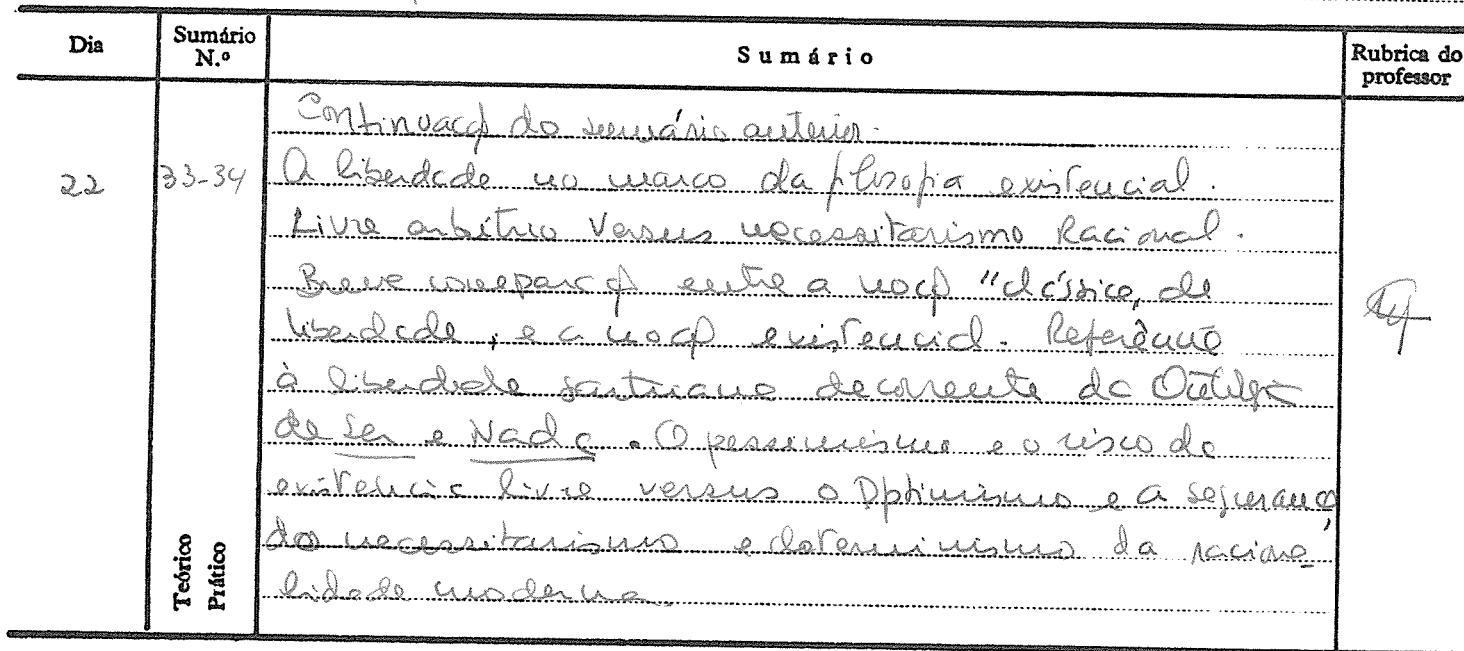 Dia
Sumário N.º
Sumário
Rubrica do professor
Continuaçã do sumário anterior.
22
33-34
A liberdade no marco da filosofia existencial.
Livre arbítrio Versus necessitarismo Racional.
Breve comparaçã entre a noçã "clássica" de
liberdade, e a noçã existencial. Referência
à liberdade sartriana decorrente da
de Ser e Nada. O pessimismo e o risco da
existência livre versus o Optimismo e a segurança
do necessitarismo e determinismo da raciona
lidade moderna.
Teórico
Prático